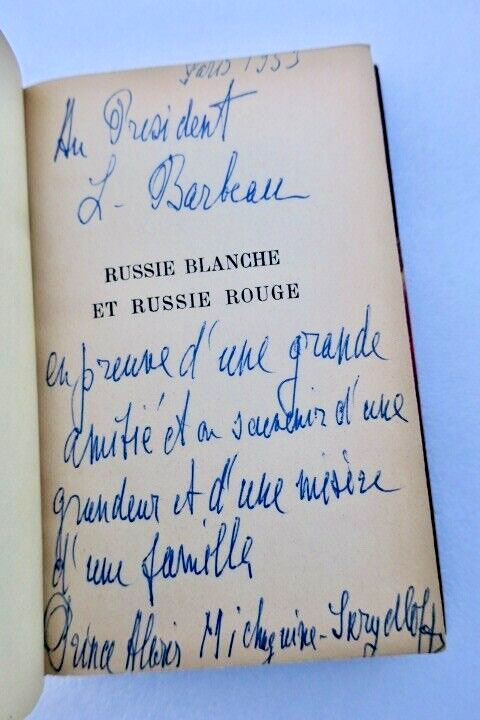 Paris 1953
Au President
L. Barbeau
RUSSIE BLANCHE
ET RUSSIE ROUGE
en preuve d'une grande
amitié et en souvenir d'une
grandeur et d'une misère
d'une famille
Prince Alexis